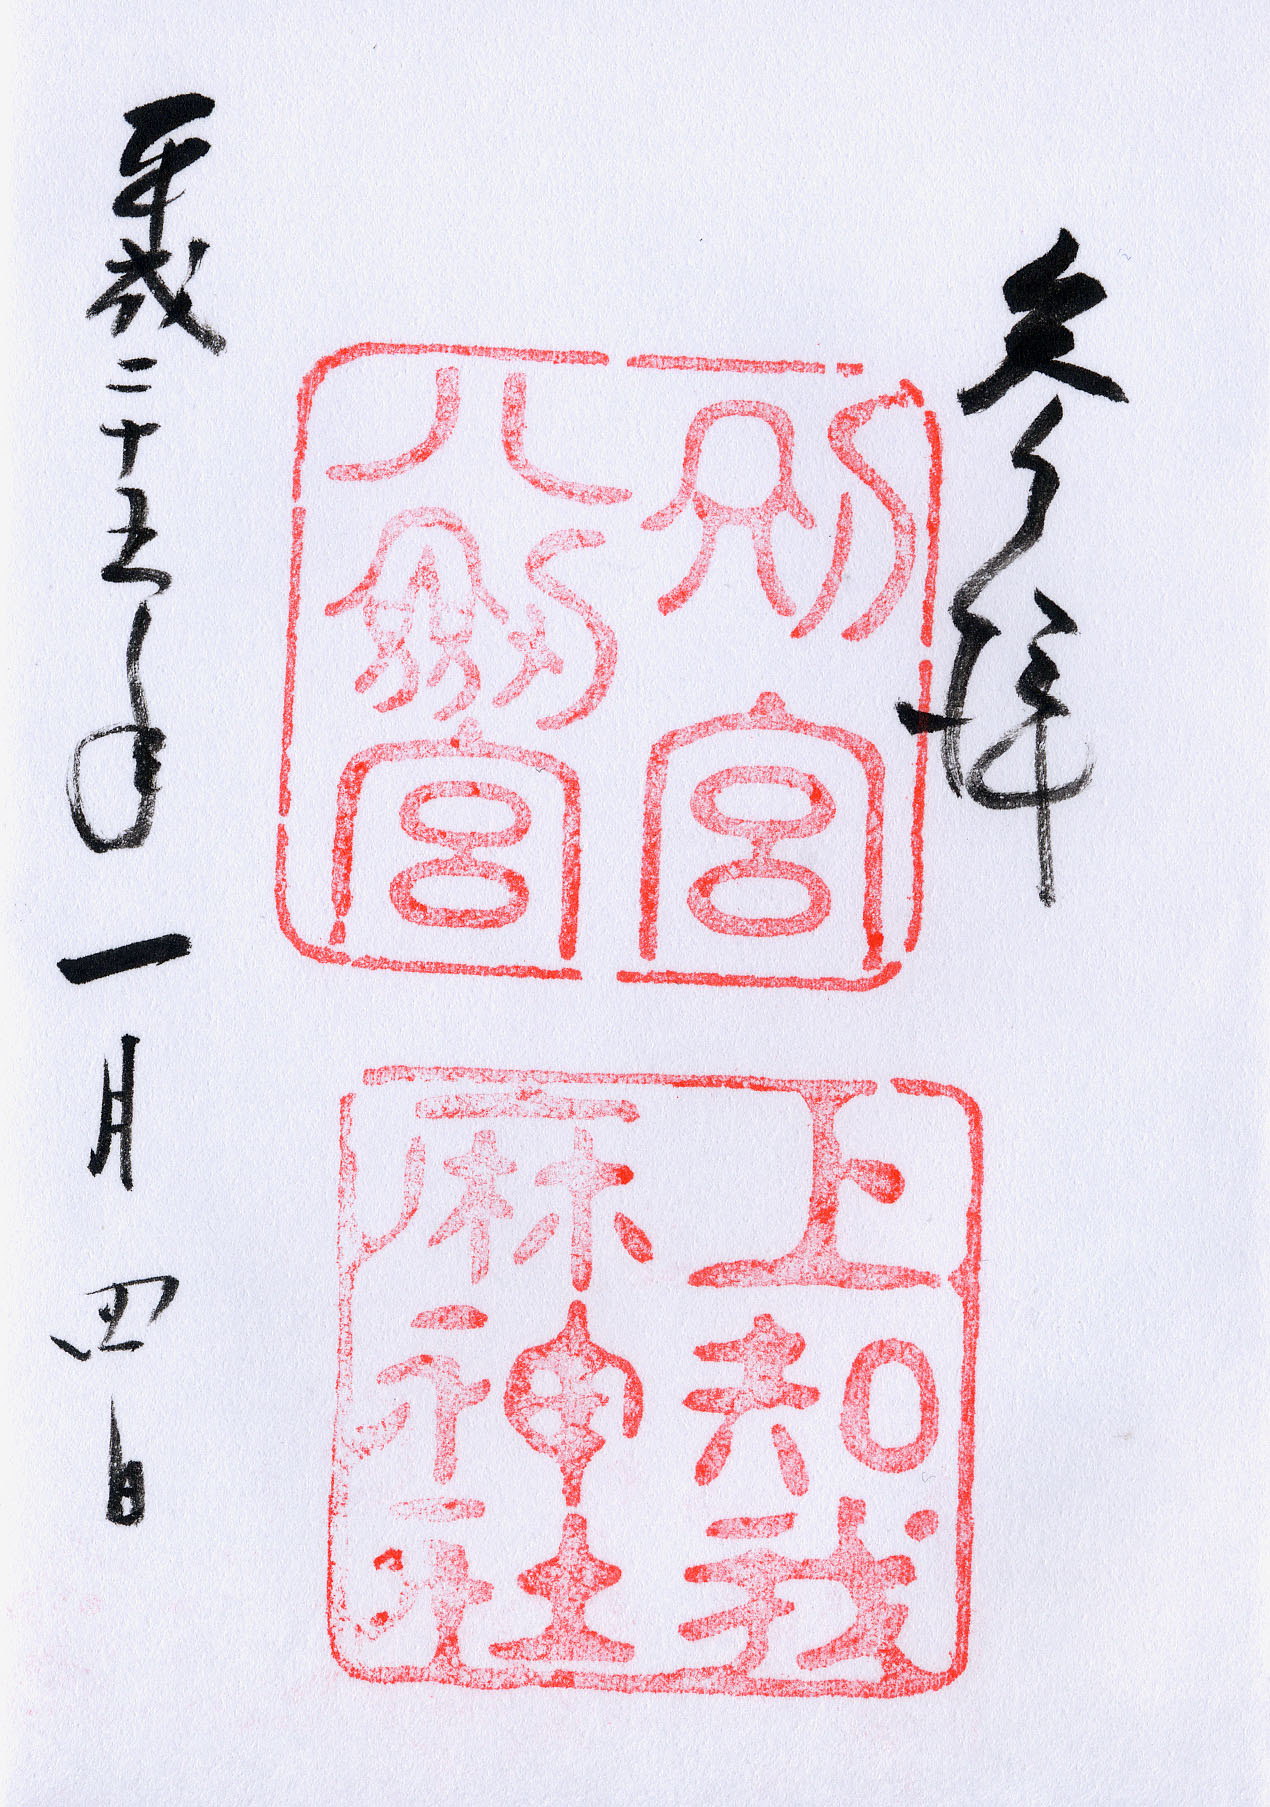 参拝
別宮
八剱宮
上知我
麻神社
平成二十五年一月四日